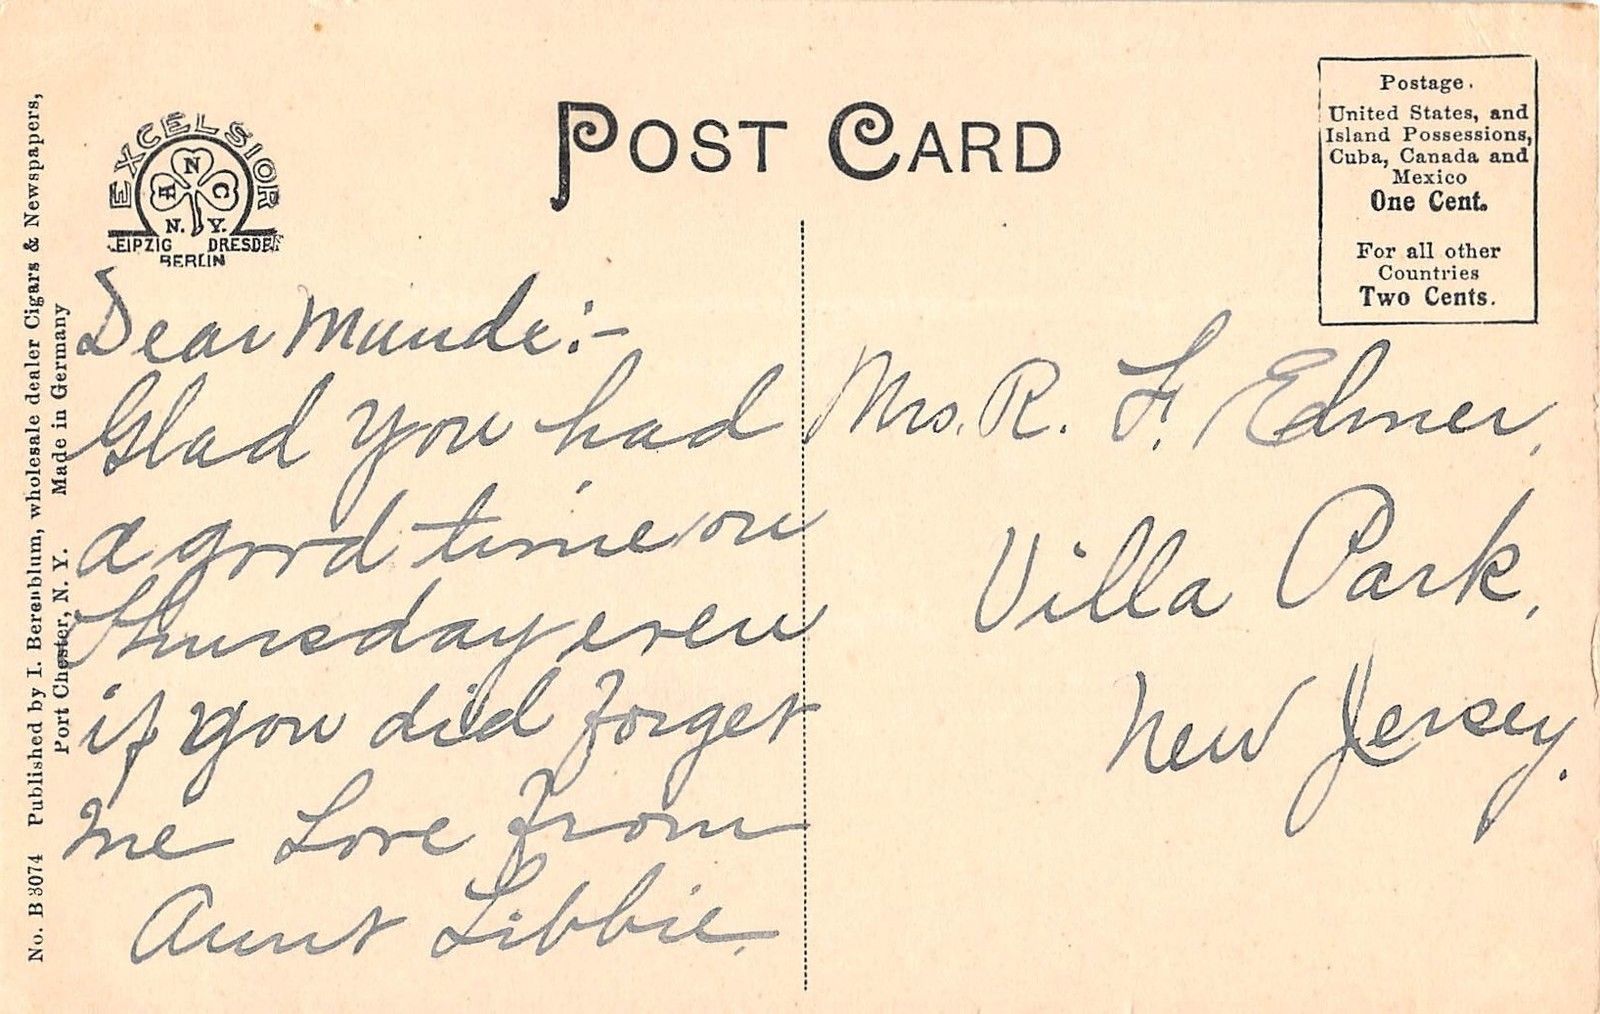 POST CARD
EXCELSIOR
H N C
N. Y.
LEIPZIG DRESDEN
BERLIN
Postage.
United States, and
Island Possessions,
Cuba, Canada and
Mexico
One Cent.
For all other
Countries
Two Cents.
No. B 3074 Published by I. Berenblum, wholesale dealer Cigars & Newspapers,
Port Chester, N. Y. Made in Germany
Dear Maude:-
Glad you had
a good time on
Thursday even
if you did forget
me Love from
Aunt Libbie.
Mrs. R. F. Elmer,
Villa Park,
New Jersey.